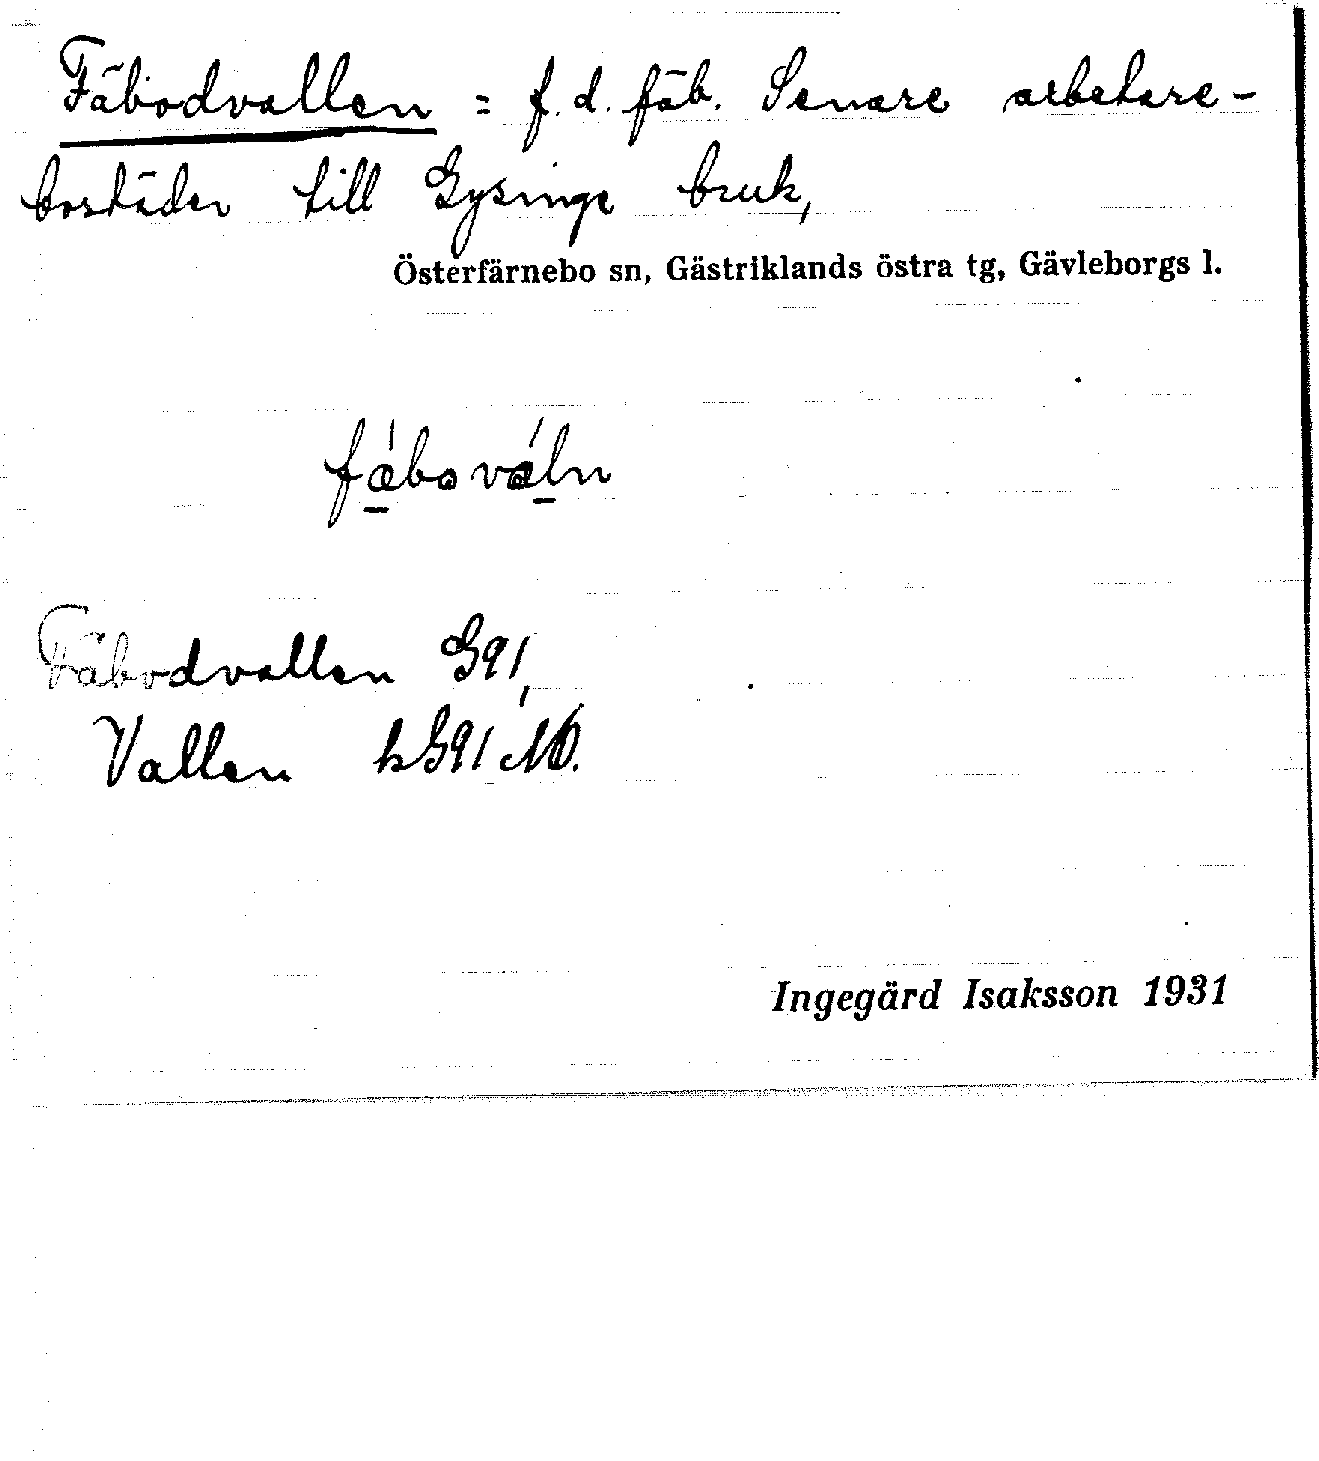 Fäbodvallen = f. d. fäb. Senare arbetare-
bostäder till Gysinge bruk,
Österfärnebo sn, Gästriklands östra tg, Gävleborgs l.
Fäbodvallen G91,
Vallen kG91 NO.
Ingegärd Isaksson 1931